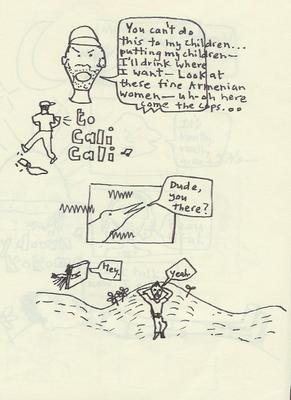 You can't do
this to my children...
putting my children—
I'll drink where
I want— Look at
these fine Armenian
women— uh-oh here
come the cops...
to
Cali
Cali
Dude,
you
there?
Hey.
Yeah.